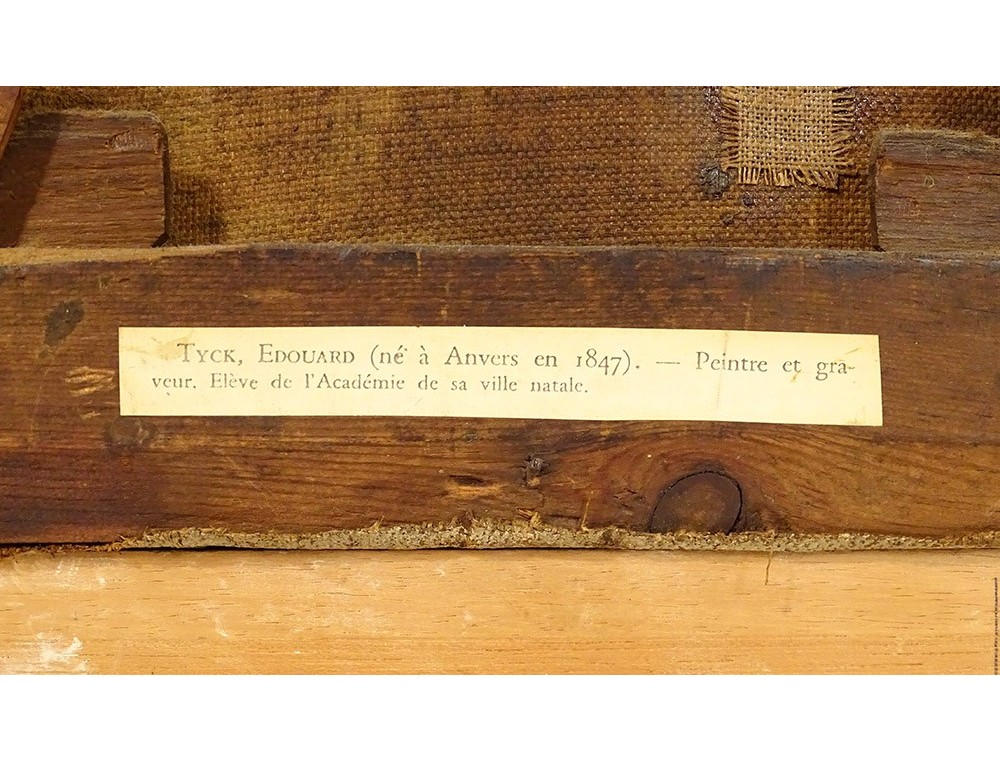 TYCK, EDOUARD (né à Anvers en 1847). — Peintre et gra-
veur. Elève de l'Académie de sa ville natale.